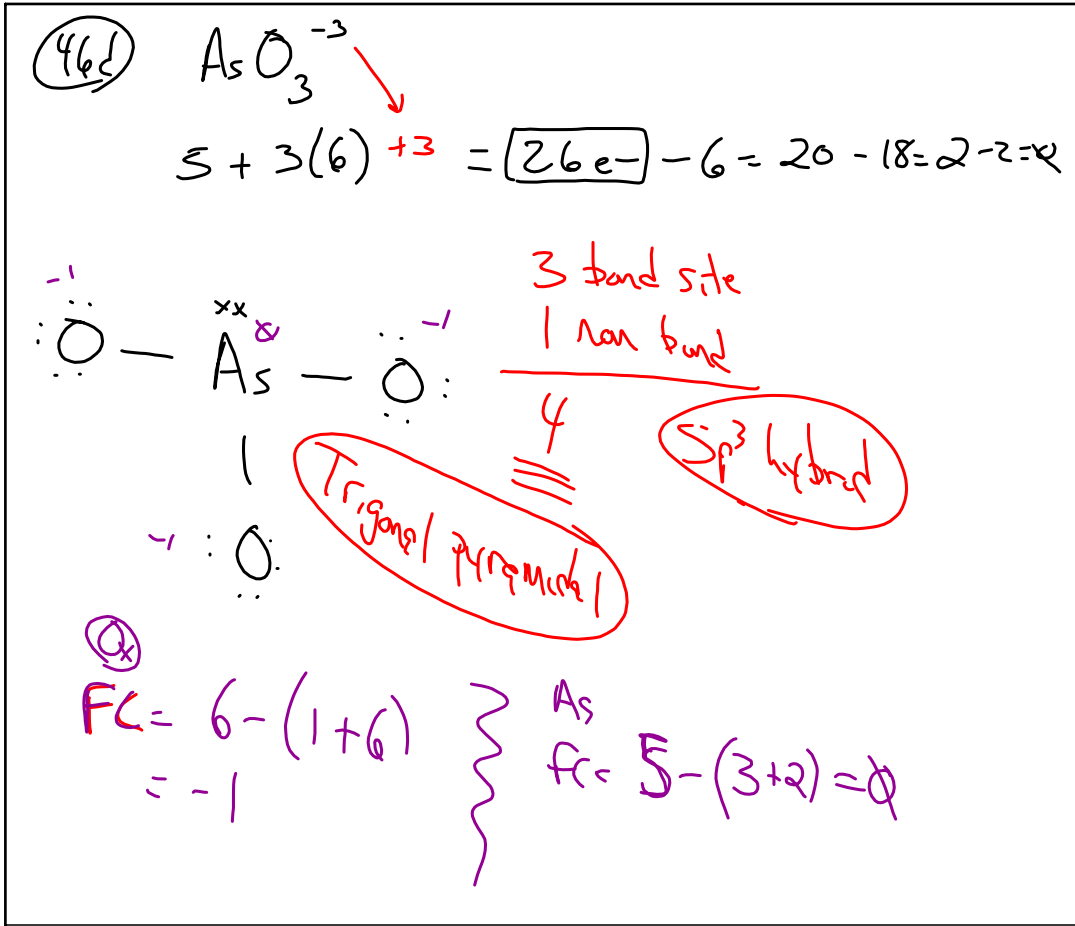 46d AsO₃⁻³
5 + 3(6) +3 = 26e- - 6 = 20 - 18 = 2 - 2 = 0
-1
:O — As — O: -1
xx
0
|
-1 :O:
3 bond site
1 non bond
4
Sp³ hybrid
Trigonal pyramidal
Ox
FC = 6 - (1+6)
= -1
As
FC = 5 - (3+2) = 0